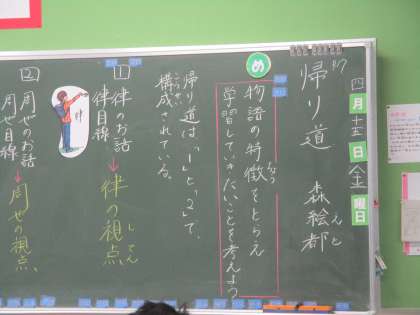 四月十五日金曜日
帰り道 森絵都
えと
め
物語の特徴をとらえ
学習していきたいことを考えよう
帰り道は、「1」と「2」で、
構成されている。
こうせい
1
律のお話
律目線
→律の視点
してん
律
2
周也のお話
周也目線
→周也の視点